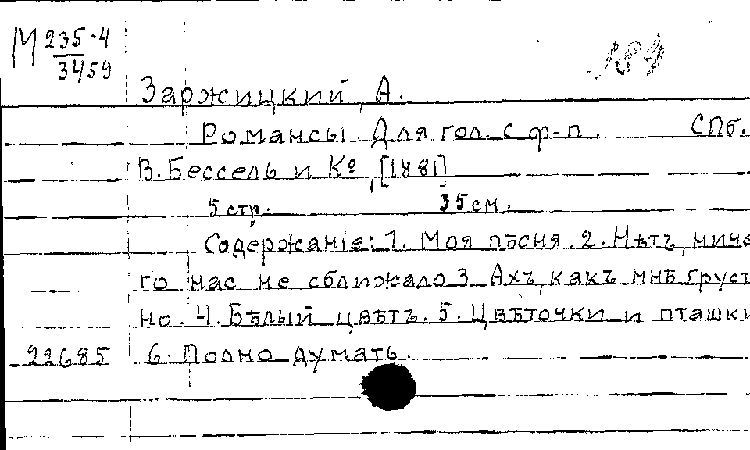 М 235-4
3459
Заржицкий, А.
Романсы. Для гол. с ф-п. СПб.
В. Бессель и Ко, [1881]
5 стр. 35 см.
Содержанiе: 1. Моя пѣсня. 2. Нѣтъ, ниче
го нас не сближало 3. Ахъ, какъ мнѣ груст
но. 4. Бѣлый цвѣтъ. 5. Цвѣточки и пташки
22685 6. Полно думать.